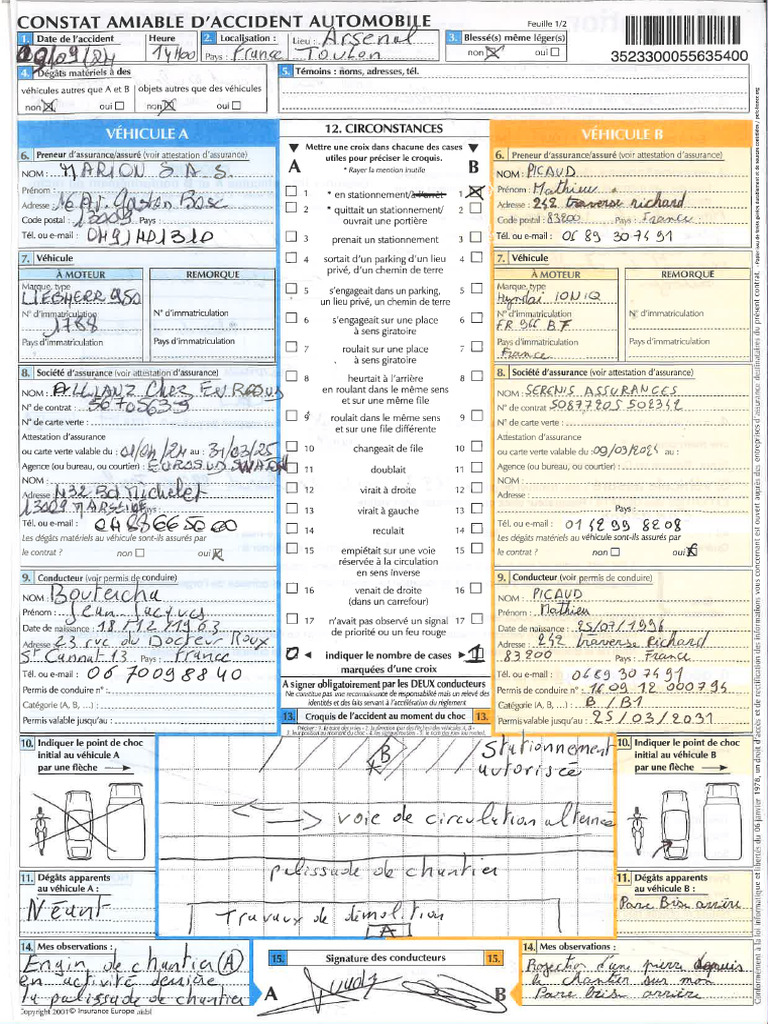 CONSTAT AMIABLE D'ACCIDENT AUTOMOBILE
Feuille 1/2
1. Date de l'accident Heure 2. Localisation : Lieu : Arsenal 3. Blessé(s) même léger(s)
09/09/24 14H00 Pays : France Toulon non oui
3523300055635400
4. Dégâts matériels à des
véhicules autres que A et B objets autres que des véhicules
non oui non oui
5. Témoins : noms, adresses, tél.
VÉHICULE A
6. Preneur d'assurance/assuré (voir attestation d'assurance)
NOM : MARION S.A.S.
Prénom :
Adresse : 16 Av. Gaston Bosc
Code postal : 13009 Pays :
Tél. ou e-mail : 0491401310
7. Véhicule
À MOTEUR REMORQUE
Marque, type
LIEBHERR 950
N° d'immatriculation N° d'immatriculation
1788
Pays d'immatriculation Pays d'immatriculation
8. Société d'assurance (voir attestation d'assurance)
NOM : ALLIANZ Chez EUROSUD
N° de contrat : 56705639
N° de carte verte :
Attestation d'assurance
ou carte verte valable du : 01/04/24 au : 31/03/25
Agence (ou bureau, ou courtier) : EUROSUD SWATON
NOM :
Adresse : 432 Bd Michelet
13009 MARSEILLE Pays :
Tél. ou e-mail : 0488665000
Les dégâts matériels au véhicule sont-ils assurés par
le contrat ? non oui
9. Conducteur (voir permis de conduire)
NOM : Boutercha
Prénom : Jean Jacques
Date de naissance : 18/12/1963
Adresse : 23 rue du Docteur Roux
St Cannat 13 Pays : France
Tél. ou e-mail : 0670098840
Permis de conduire n° :
Catégorie (A, B, ...) :
Permis valable jusqu'au :
12. CIRCONSTANCES
Mettre une croix dans chacune des cases
utiles pour préciser le croquis.
A B
* Rayer la mention inutile
1 * en stationnement/à l'arrêt 1
2 * quittait un stationnement/ 2
ouvrait une portière
3 prenait un stationnement 3
4 sortait d'un parking d'un lieu 4
privé, d'un chemin de terre
5 s'engageait dans un parking, 5
un lieu privé, un chemin de terre
6 s'engageait sur une place 6
à sens giratoire
7 roulait sur une place 7
à sens giratoire
8 heurtait à l'arrière 8
en roulant dans le même sens
et sur une même file
9 roulait dans le même sens 9
et sur une file différente
10 changeait de file 10
11 doublait 11
12 virait à droite 12
13 virait à gauche 13
14 reculait 14
15 empiétait sur une voie 15
réservée à la circulation
en sens inverse
16 venait de droite 16
(dans un carrefour)
17 n'avait pas observé un signal 17
de priorité ou un feu rouge
0 indiquer le nombre de cases 1
marquées d'une croix
A signer obligatoirement par les DEUX conducteurs
Ne constitue pas une reconnaissance de responsabilité mais un relevé des
identités et des faits servant à l'accélération du règlement
VÉHICULE B
6. Preneur d'assurance/assuré (voir attestation d'assurance)
NOM : PICAUD
Prénom : Mathieu
Adresse : 242 traverse richard
Code postal : 83200 Pays : France
Tél. ou e-mail : 06 89 307491
7. Véhicule
À MOTEUR REMORQUE
Marque, type
Hyundai IONIQ
N° d'immatriculation N° d'immatriculation
FR 966 BF
Pays d'immatriculation Pays d'immatriculation
France
8. Société d'assurance (voir attestation d'assurance)
NOM : SERENIS ASSURANCES
N° de contrat : 50877205 502342
N° de carte verte :
Attestation d'assurance
ou carte verte valable du : 09/03/2024 au :
Agence (ou bureau, ou courtier) :
NOM :
Adresse :
Pays :
Tél. ou e-mail : 01 42 99 8208
Les dégâts matériels au véhicule sont-ils assurés par
le contrat ? non oui
9. Conducteur (voir permis de conduire)
NOM : PICAUD
Prénom : Mathieu
Date de naissance : 25/07/1996
Adresse : 242 traverse Richard
83200 Pays : France
Tél. ou e-mail : 0689 307491
Permis de conduire n° : 16 09 12 000794
Catégorie (A, B, ...) : B / B1
Permis valable jusqu'au : 25/03/2031
13. Croquis de l'accident au moment du choc 13.
10. Indiquer le point de choc
initial au véhicule A
par une flèche
B Stationnement
autorisée
voie de circulation alternée
palissade de chantier
Travaux de démolition
A
10. Indiquer le point de choc
initial au véhicule B
par une flèche
11. Dégâts apparents
au véhicule A :
Néant
11. Dégâts apparents
au véhicule B :
Pare Bise arrière
14. Mes observations :
Engin de chantier (A)
en activité derrière
la palissade de chantier
15. Signature des conducteurs 15.
A B
14. Mes observations :
Projection d'une pierre depuis
le chantier sur mon
Pare brise arrière
Copyright 2001© Insurance Europe aisbl